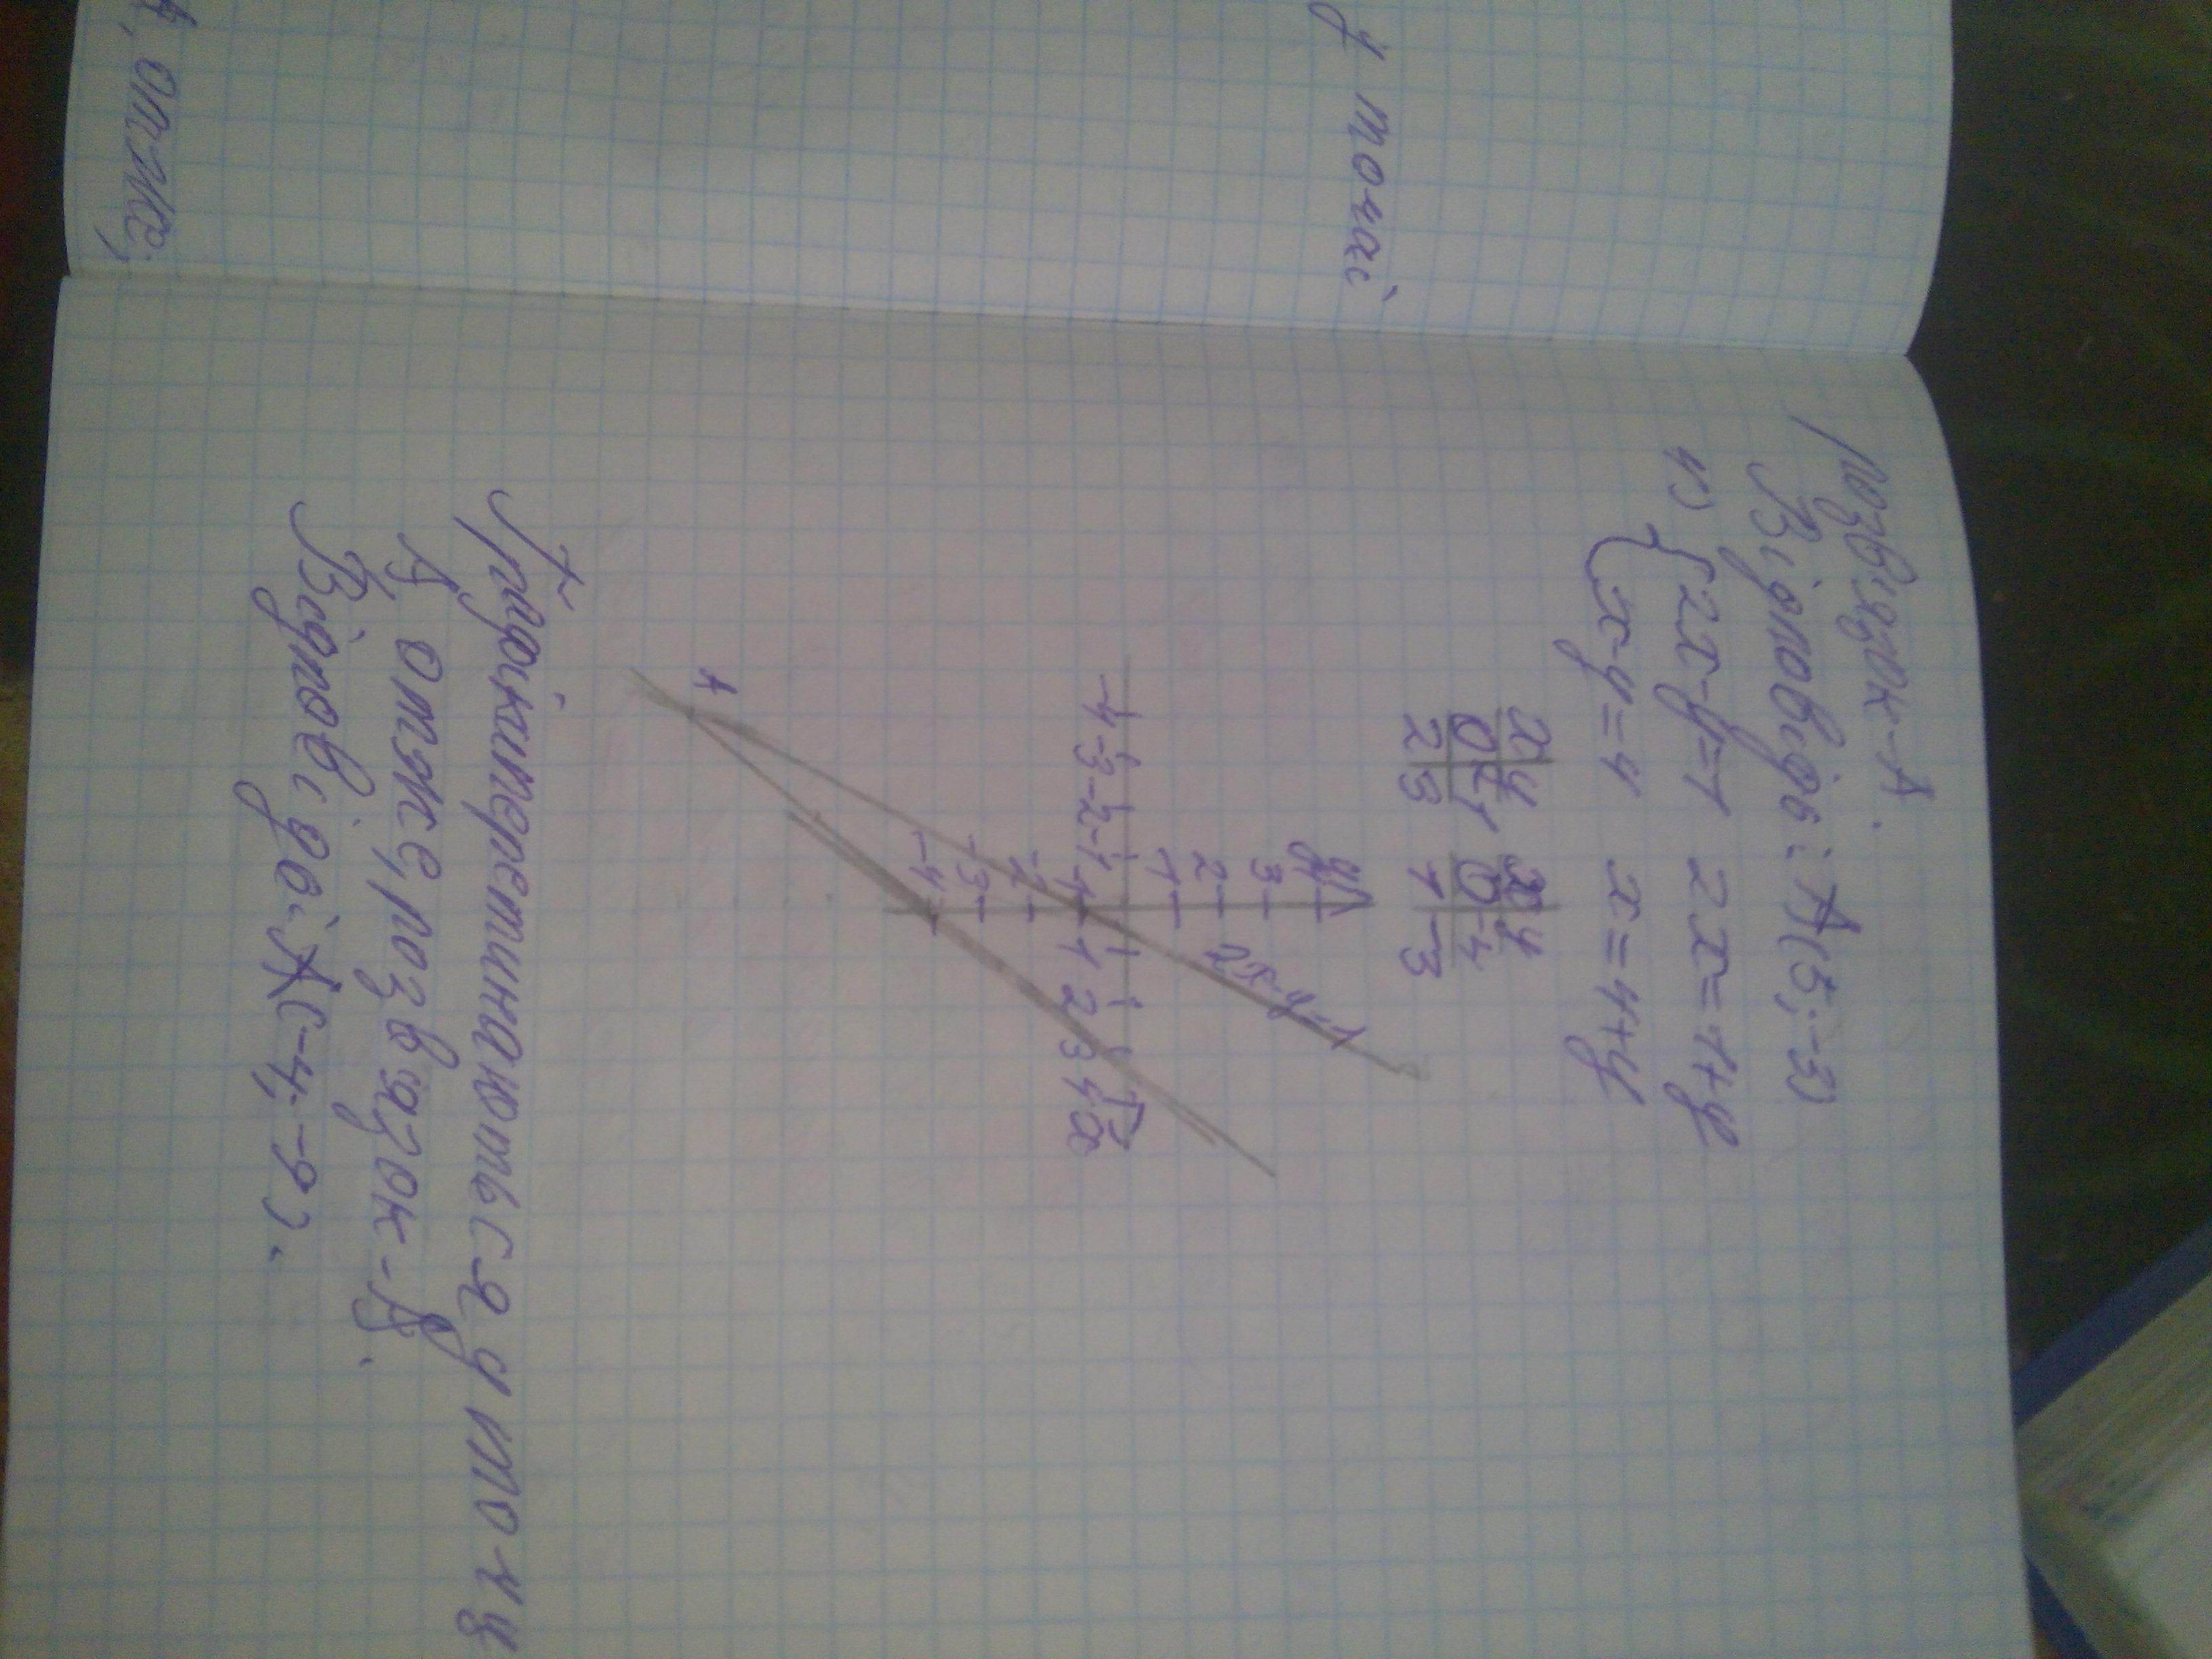 у точці
, отже,
розв'язок-А.
Відповідь: А(5; -3)
4) {2x-y=1 2x=1+y
x-y=4 x=4+y
x y x y
0 -1 0 -4
2 3 1 -3
y
4
3
2
1
-4 -3 -2 -1 1 2 3 4 x
-1
-2
-3
-4
2x-y=1
A
Графіки перетинаються у точці
А, отже, розв'язок-А.
Відповідь: А(-4; -9).